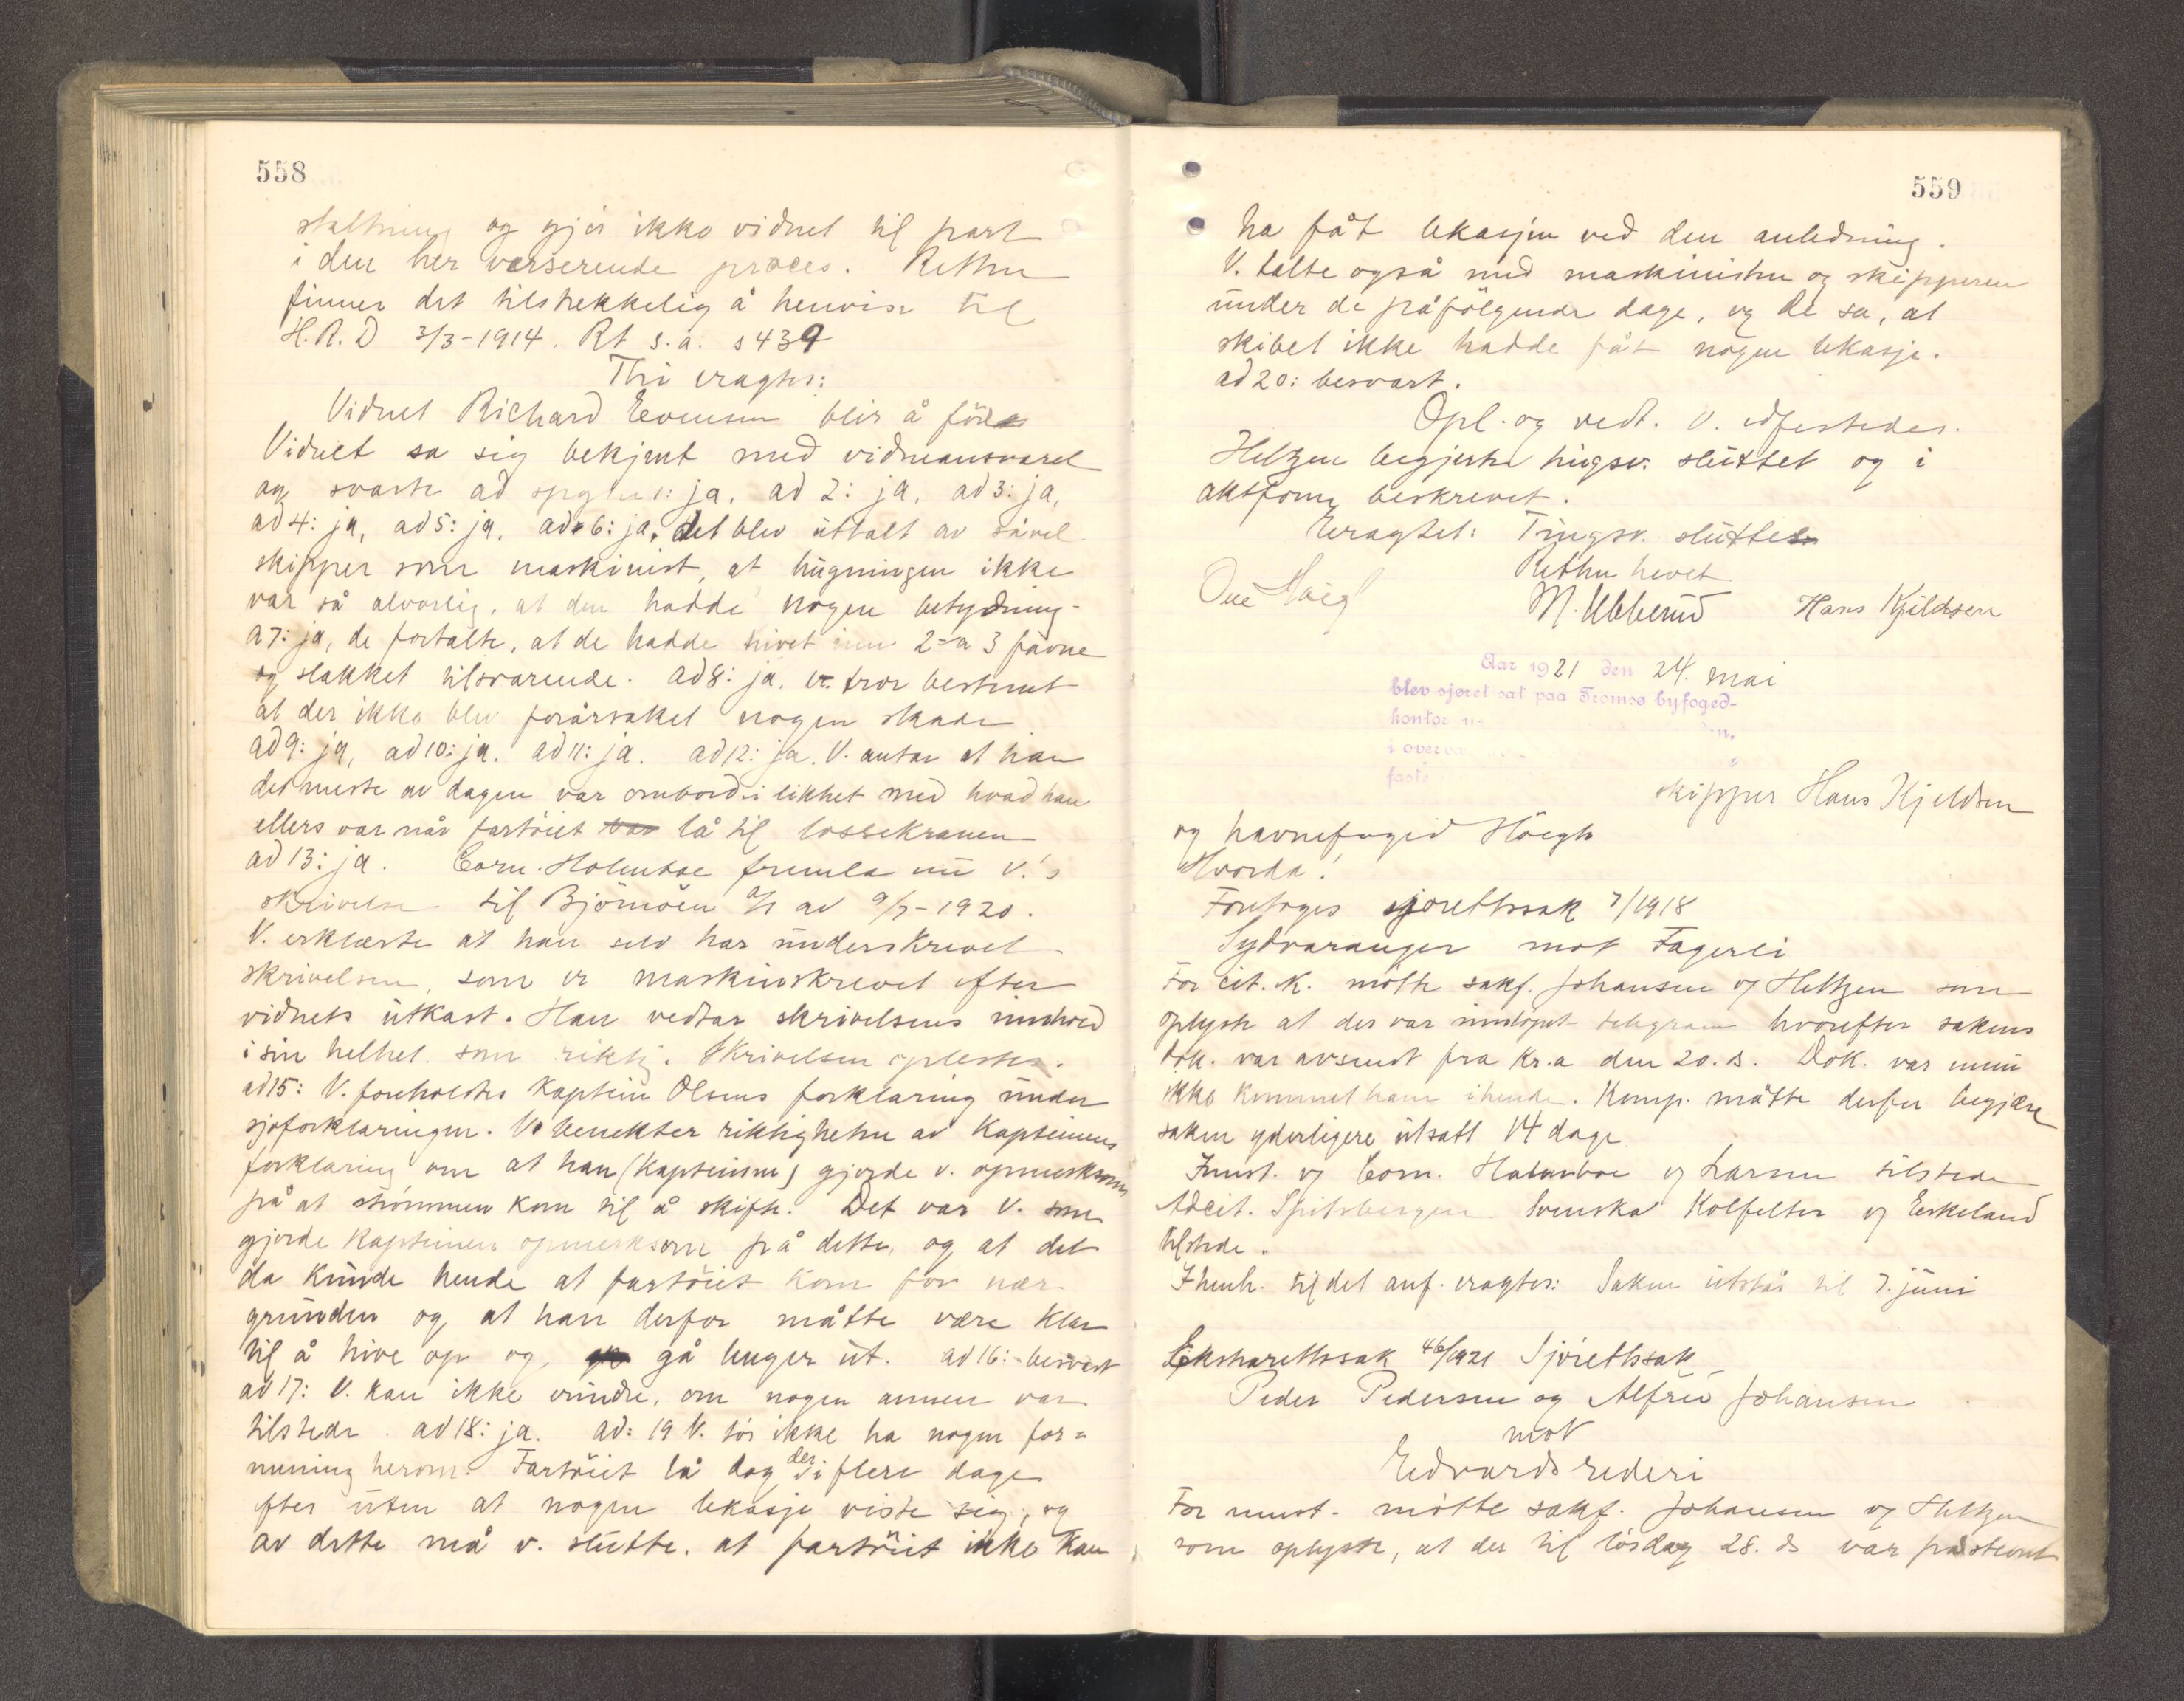 558
staltning og gjør ikke vidnet til part
i den her verserende proces. Retten
finner det tilstrekkelig å henvise til
H.R.D 3/3-1914. Rt s.a. s 439
Thi eragtes:
Vidnet Richard Evensen blir å føre
Vidnet sa sig bekjent med vidneansvaret
og svarte ad spgsm 1: ja, ad 2: ja, ad 3: ja,
ad 4: ja, ad 5: ja, ad 6: ja, det blev uttalt av såvel
skipper som maskinist, at hugningen ikke
var så alvorlig, at den hadde nogen betydning-
a 7: ja, de fortalte, at de hadde hivet inn 2 a 3 favne
og slakket tilsvarende. ad 8: ja, v. tror bestemt
at der ikke blev forårsaket nogen skade
ad 9: ja, ad 10: ja. ad 11: ja. ad 12: ja. V. antar at han
det meste av dagen var ombord i likhet med hvad han
ellers var når fartöiet var lå til lossekranen
ad 13: ja. Corn. Holmboe fremla nu V.'s
skrivelse til Björnöen A/S av 9/7-1920.
V. erklærte at han selv har underskrevet
skrivelsen, som er maskinskrevet efter
vidnets utkast. Han vedtar skrivelsens innhold
i sin helhet som riktig. Skrivelsen oplestes.
ad 15: V. foreholdtes Kaptein Olsens forklaring under
sjøforklaringen. V. benekter riktigheten av Kapteinens
forklaring om at han (Kapteinen) gjorde v. opmerksom
på at strömmen kom til å skifte. Det var V. som
gjorde Kapteinen opmerksom på dette, og at det
da kunde hende at fartöiet kom for nær
grunden og at han derfor måtte være klar
til å hive op og gå lenger ut. ad 16: besvart
ad 17: V. kan ikke erindre, om nogen annen var
tilstede. ad 18: ja. ad: 19 V. tör ikke ha nogen for=
mening herom. Fartöiet lå dog der i flere dage
efter uten at nogen lekasje viste sig, og
av dette må v. slutte, at fartöiet ikke kan
559
ha fåt lekasjen ved den anledning.
V. talte også med maskinisten og skipperen
under de påfölgende dage, og de sa, at
skibet ikke hadde fåt nogen lekasje.
ad 20: besvart.
Opl. og vedt. V. edfestedes.
Heltzen begjerte tingsv. sluttet og i
aktform beskrevet.
Eragtet: Tingsv. sluttes
Retten hevet
M. Ubberud Hans Kjeldsen
Aar 1921 den 24. mai
blev sjøret sat paa Tromsø byfoged-
kontor
skipper Hans Kjeldsen
og havnefoged Höegh
Hvorda:
Foretoges sjørettssak 7/1918
Sydvaranger mot Fagerli
For cit. K. mötte sakf. Johansen og Heltzen som
oplyste at der var innlöpet telegram hvorefter sakens
dok. var avsendt fra Kr.a den 20. ds. Dok. var ennu
ikke kommet ham ihende. Komp. måtte derfor begjære
saken yderligere utsatt 14 dage.
Innst. og Corn. Holmboe og Larsen tilstede
Adcit. Spitsbergen Svenska Kolfelter og Eskeland
tilstede.
I henh. til det anf. eragtes: Saken utstår til 7. juni
Ekstrarettssak 46/1921 Sjørettssak
Peder Pedersen og Alfred Johansen
mot
Edvards rederi
For innst. mötte sakf. Johansen og Heltzen
som oplyste, at der til lördag 28. ds var påstevnt